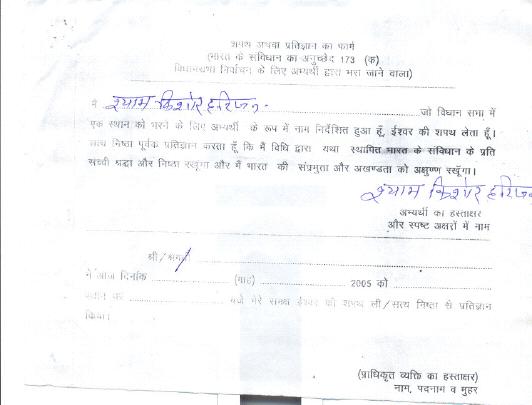 शपथ अथवा प्रतिज्ञान का फार्म
(भारत के संविधान का अनुच्छेद 173 (क)
विधानसभा निर्वाचन के लिए अभ्यर्थी द्वारा भरा जाने वाला)
मैं श्याम किशोर हरिजन जो विधान सभा में
एक स्थान को भरने के लिए अभ्यर्थी के रूप में नाम निर्देशित हुआ हूँ, ईश्वर की शपथ लेता हूँ।
सत्य निष्ठा पूर्वक प्रतिज्ञान करता हूँ कि मैं विधि द्वारा यथा स्थापित भारत के संविधान के प्रति
सच्ची श्रद्धा और निष्ठा रखूंगा और मैं भारत की संप्रभुता और अखण्डता को अक्षुण्ण रखूँगा।
श्याम किशोर हरिजन
अभ्यर्थी का हस्ताक्षर
और स्पष्ट अक्षरों में नाम
श्री/श्रीमती
ने आज दिनांक (माह) 2005 को
स्थान पर बजे मेरे समक्ष ईश्वर की शपथ ली/सत्य निष्ठा से प्रतिज्ञान
किया।
(प्राधिकृत व्यक्ति का हस्ताक्षर)
नाम, पदनाम व मुहर